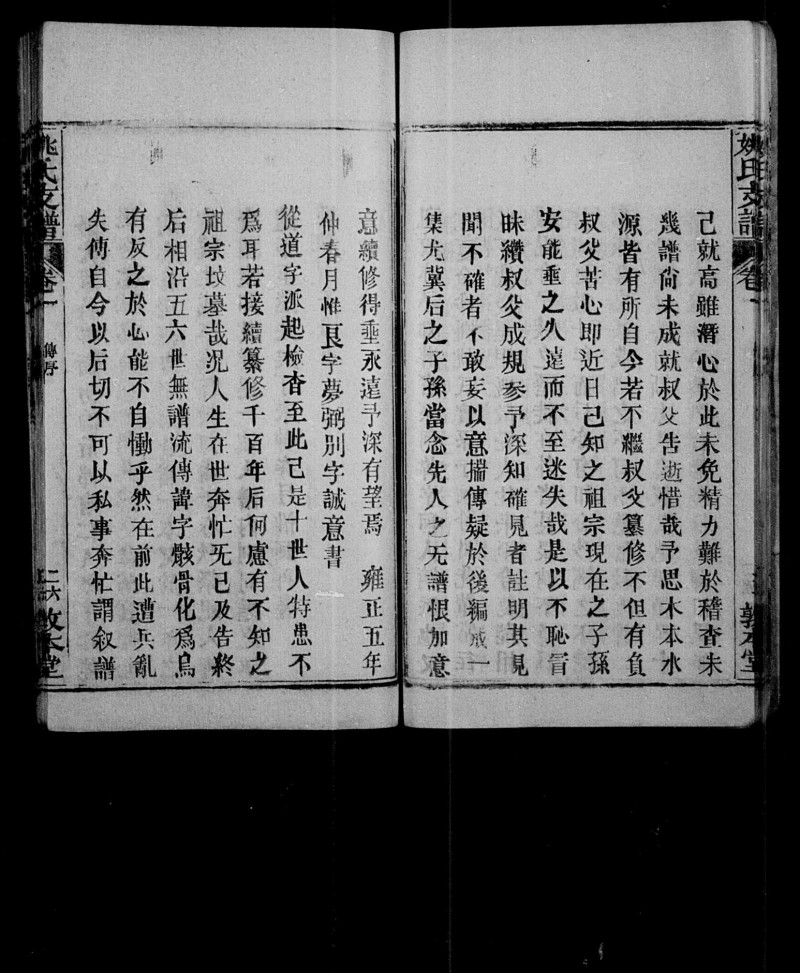 姚氏支譜
卷一
敦本堂
己就高雖潛心於此未免精力難於稽查未
幾譜尙未成就叔父告逝惜哉予思木本水
源皆有所自今若不繼叔父纂修不但有負
叔父苦心即近日己知之祖宗現在之子孫
安能垂之久遠而不至迷失哉是以不恥冒
昧纘叔父成規參予深知確見者註明其見
聞不確者不敢妄以意揣傳疑於後編成一
集尤冀后之子孫當念先人之无譜恨加意
意續修得垂永遠予深有望焉　雍正五年
仲春月惟艮字夢弼別字誠意書
從道字派起檢查至此己是十世人特患不
爲耳若接續纂修千百年后何慮有不知之
祖宗坟墓哉况人生在世奔忙无己及告終
后相沿五六世無譜流傳諱字骸骨化爲烏
有反之於心能不自慟乎然在前此遭兵亂
失傳自今以后切不可以私事奔忙謂叙譜
姚氏支譜
卷一
傳序
二六
敦本堂